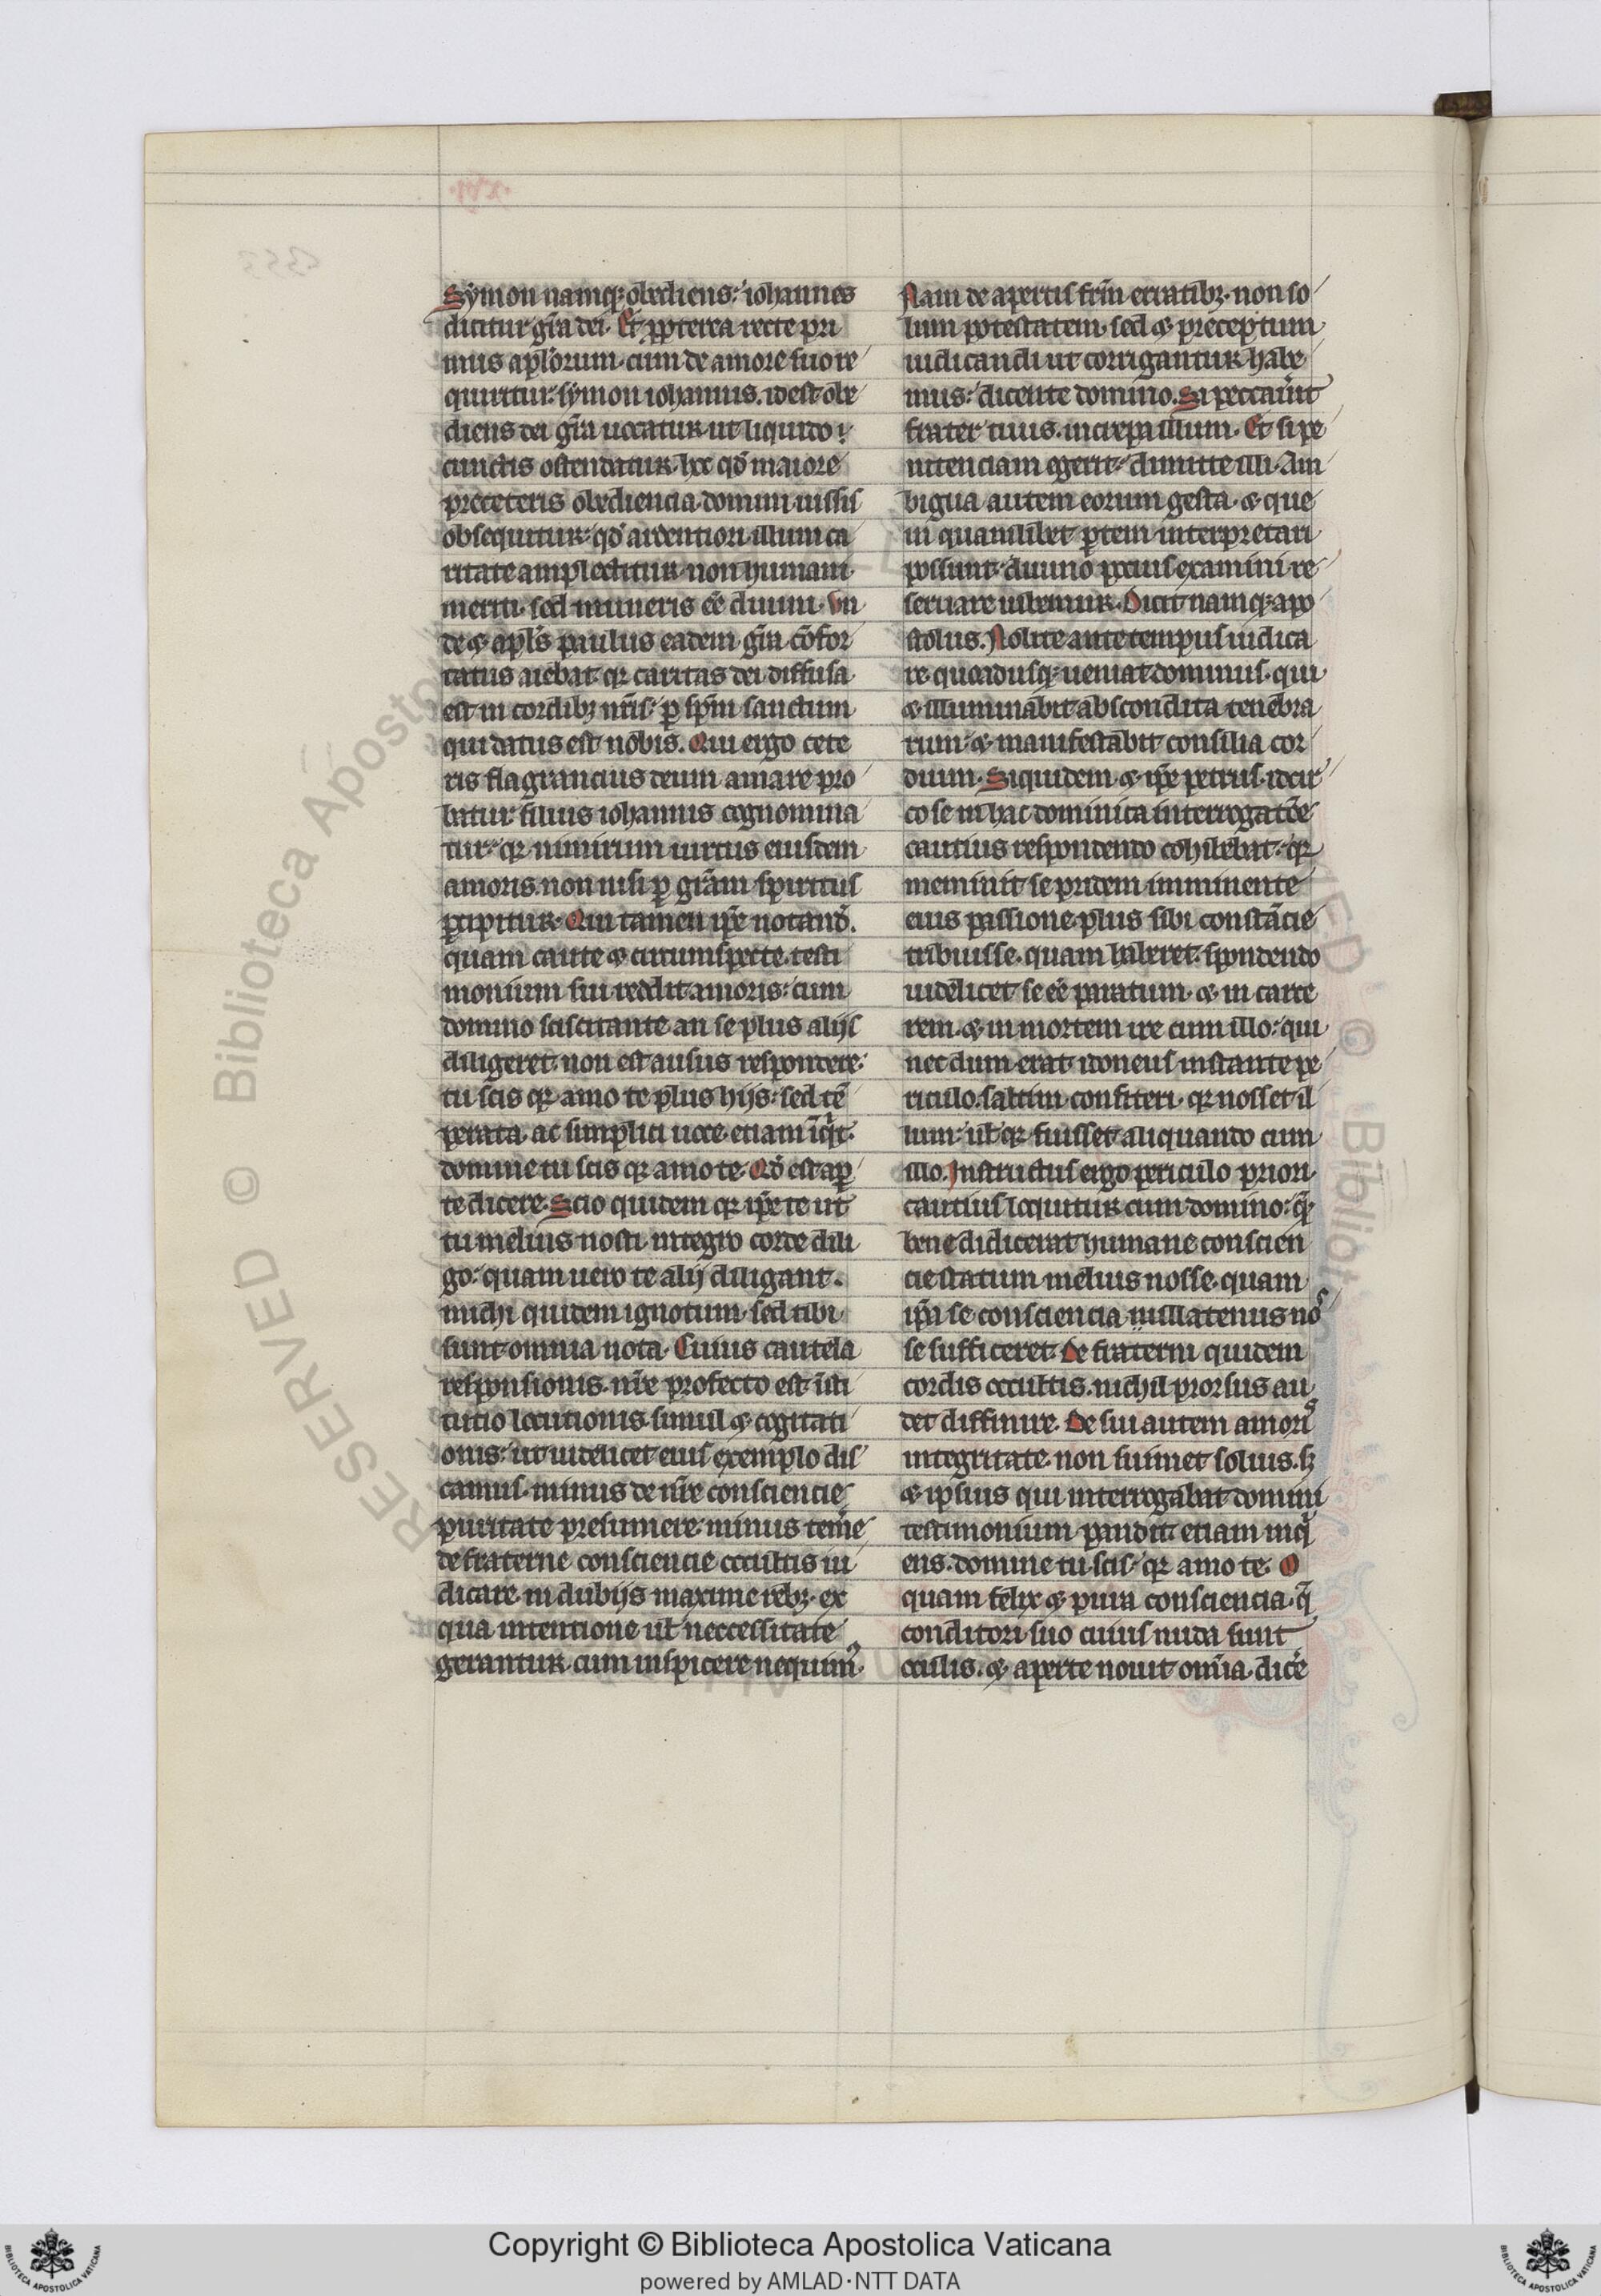 Symon namq; obediens: iohannes
dicitur gr̃a dei. Et ꝓpterea recte pri
mus apl̃orum. cum de amore suo re
quiritur: symon iohannis. id est obe
diens dei gr̃a uocatur. ut liquido
cunctis ostendatur. hoc qd̃ maiore
pre ceteris obediencia domini iussis
obsequitur: qd̃ ardentiori illum ca
ritate amplectitur. non humani
meriti. sed muneris eẽ diuini. Un
de ⁊ apl̃s paulus eadem gr̃a cõfor
tatus aiebat. qr caritas dei diffusa
est in cordibꝫ nr̃is. ꝑ sp̃m sanctum
qui datus est nobis. Qui ergo cete
ris flagrancius deum amare pro
batur. filius iohannis cognomina
tur: qr nimirum uirtus eiusdem
amoris. non nisi ꝑ gr̃am spiritus
ꝑcipitur. Qui tamen ip̃e notand̃.
quam caute ⁊ circumspecte. testi
monium sui reddit amoris: cum
domino sciscitante an se plus alijs
diligeret. non est ausus respondere:
tu scis qr amo te plus hijs: sed tẽ
perata. ac simplici uoce. etiam inq̃t.
domine tu scis qr amo te. Qd̃ est aꝑ
te dicere. Scio quidem qr ip̃e te ut
tu melius nosti. integro corde dili
go: quam uero te alij diligant.
michi quidem ignotum. sed tibi
sunt omnia nota. Cuius cautela
responsionis. nr̃e profecto est ĩsti
tutio locutionis. simul ⁊ cogitati
onis: ut uidelicet eius exemplo dis
camus. minus de nr̃e consciencie
puritate presumere. minus tem̃e
de fraterne consciencie occultis iu
dicare. in dubijs maxime rebꝫ. ex
qua intentione ul̃ neccessitate
gerantur. cum inspicere nequim⁹.
Nam de apertis fr̃m erratibꝫ. non so
lum potestatem. sed ⁊ preceptum
iudicandi ut corrigantur habe
mus: dicente domino. Si peccauit
frater tuus. increpa illum. Et si pe
nitenciam egerit. dimitte illi. Am
bigua autem eorum gesta. ⁊ que
in quamlibet ꝑtem interpretari
possunt. diuino pocius examini re
seruare iubemur. Dicit namq; apo
stolus. Nolite ante tempus iudica
re. quoadusq; ueniat dominus. qui
⁊ illuminabit abscondita tenebra
rum: ⁊ manifestabit consilia cor
dium. Siquidem ⁊ ip̃e petrus. idcir
co se in hac dominica interrogatõe
cautius respondendo cohibebat. qr
meminit se pridem imminente
eius passione plus sibi constãcie
tribuisse. quam haberet. spondendo
uidelicet se eẽ paratum. ⁊ in carce
rem. ⁊ in mortem ire cum illo: qui
nec dum erat idoneus instante pe
riculo. saltim confiteri. qr nosset il
lum: ul̃ qr fuisset aliquando cum
illo. Instructus ergo periculo priori.
cautius loquitur cum domino: q̃
bene didicerat humane conscien
cie statum melius nosse. quam
ip̃a se consciencia nullatenus nos
se sufficeret. De fraterni quidem
cordis occultis. nichil prorsus au
det diffinire. De sui autem amoris
integritate. non suimet solius. sꝫ
⁊ ipsius qui interrogabat domini
testimonium pandit. etiam inq̃
ens. domine tu scis: qr amo te. O
quam felix ⁊ pura consciencia. q̃
conditori suo cuius nuda sunt
oculis. ⁊ aperte nouit omĩa. dic̃e
RESERVED © Biblioteca Aposto
Copyright © Biblioteca Apostolica Vaticana
powered by AMLAD·NTT DATA